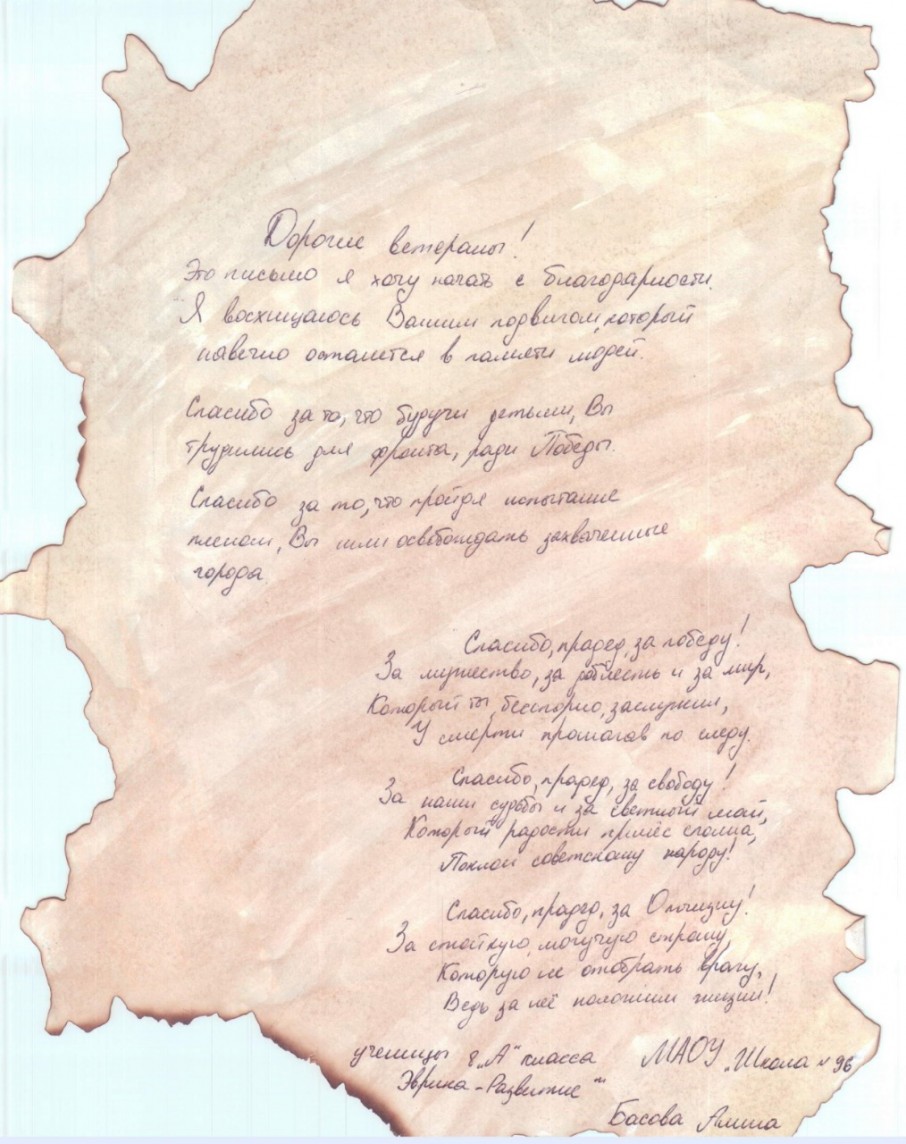 Дорогие ветераны!
Это письмо я хочу начать с благодарности.
Я восхищаюсь Вашим подвигом, который
навечно останется в памяти людей.
Спасибо за то, что будучи детьми, Вы
трудились для фронта, ради Победы.
Спасибо за то, что пройдя испытание
пленом, Вы шли освобождать захваченные
города.
Спасибо, прадед, за победу!
За мужество, за доблесть и за мир,
Который ты, бесспорно, заслужил,
У смерти прошагав по следу.
Спасибо, прадед, за свободу!
За наши судьбы и за светлый май,
Который радости принёс сполна,
Поклон советскому народу!
Спасибо, прадед, за Отчизну!
За стойкую, могучую страну,
Которую не отобрать врагу,
Ведь за неё положили жизни!
ученицы "А" класса МАОУ "Школа №96
Эврика-Развитие"
Басова Алина